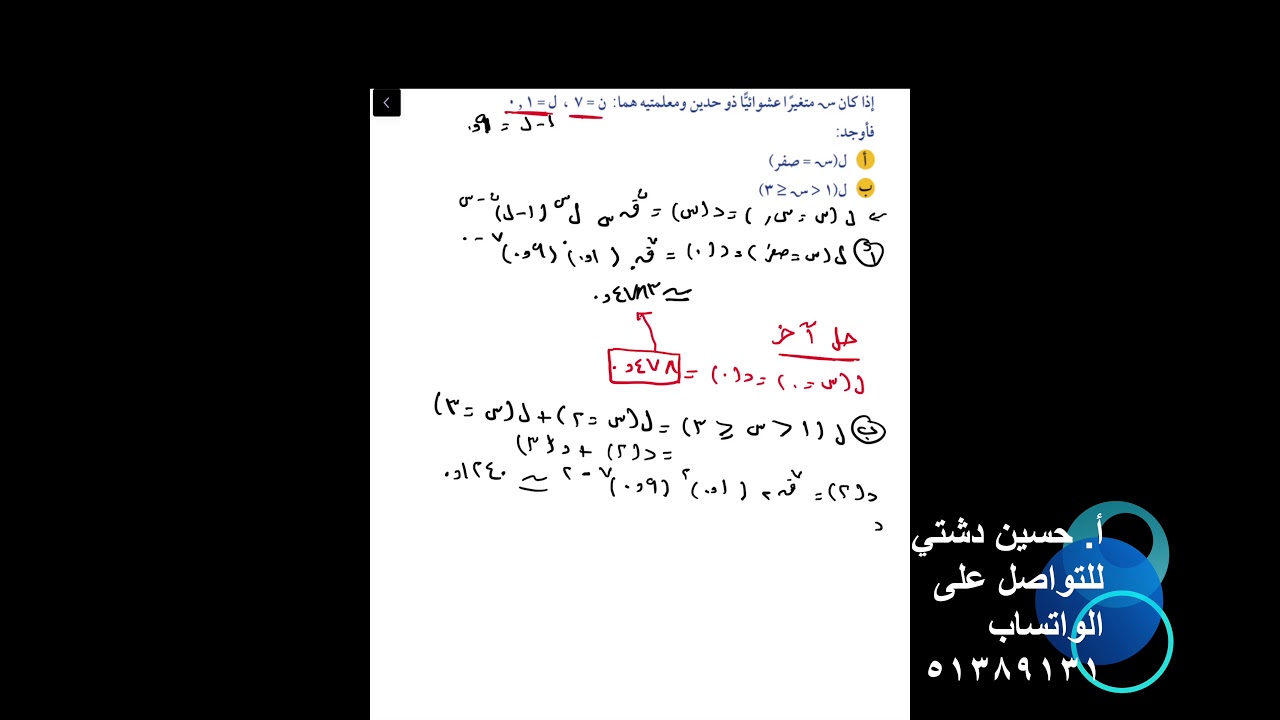 إذا كان سـ متغيرًا عشوائيًّا ذو حدين ومعلمتيه هما: ن = ٧ ، ل = ٠,١
١ - ل = ٠,٩
فأوجد:
أ ل(سـ = صفر)
ب ل(١ < سـ ≤ ٣)
ل (س = س) = د(س) = نقس ل^س (١-ل)^ن-س
أ ل(س = صفر) = د(٠) = ٧ق٠ (٠,١)^٠ (٠,٩)^٧-٠
≃ ٠,٤٧٨٣
حل آخر
ل(س = ٠) = د(٠) = ٠,٤٧٨
ب ل (١ < س ≤ ٣) = ل(س = ٢) + ل(س = ٣)
= د(٢) + د(٣)
د(٢) = ٧ق٢ (٠,١)^٢ (٠,٩)^٧-٢ ≃ ٠,١٢٤٠
د
أ. حسين دشتي
للتواصل على
الواتساب
٥١٣٨٩١٣١